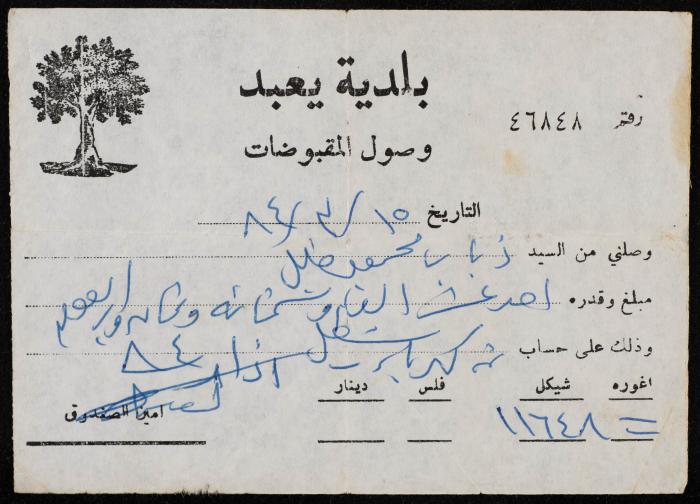 بلدية يعبد
رقم ٤٦٨٤٨
وصول المقبوضات
التاريخ ١٥/٣/٨٤
وصلني من السيد ذياب محمود خليل
مبلغ وقدره احد عشر الف وستمائة وثمانية واربعون
شيكل
وذلك على حساب كهرباء اذار ٨٤
اغوره شيكل فلس دينار
= ١١٦٤٨
امين الصندوق